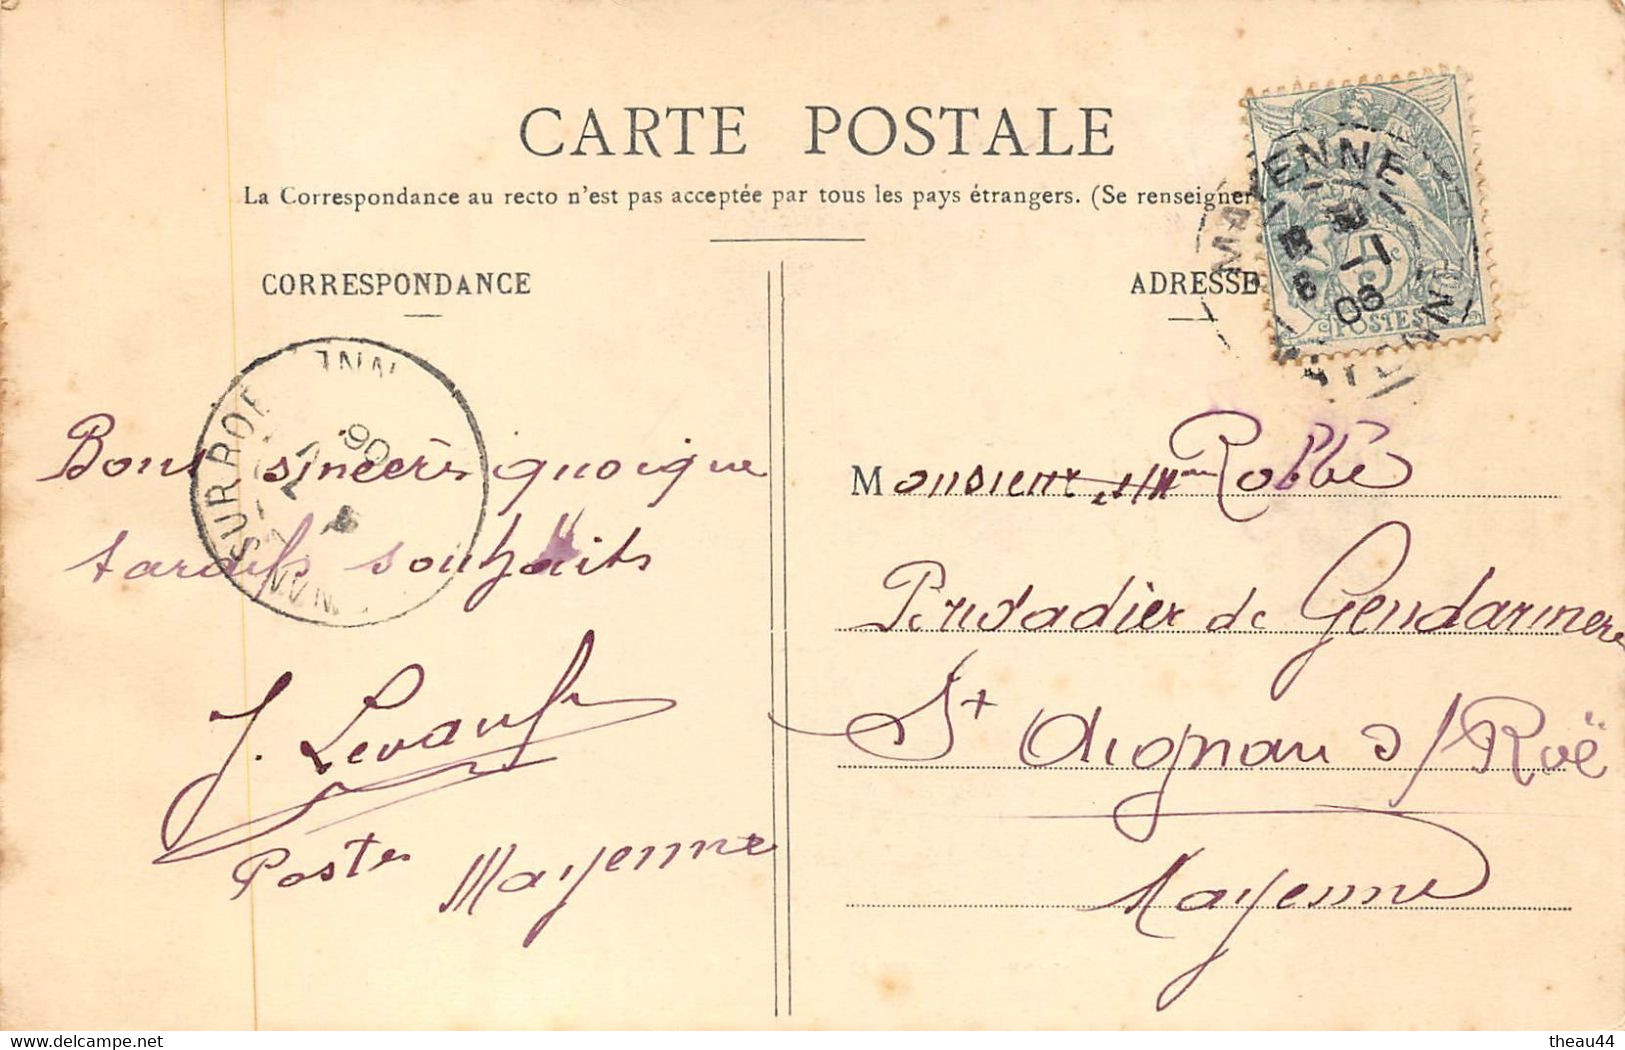 CARTE POSTALE
La Correspondance au recto n'est pas acceptée par tous les pays étrangers. (Se renseigner
CORRESPONDANCE
ADRESSE
MAYENNE
06
POSTES
SUR ROE
06
Bons sincères quoique
tardifs souhaits
J.
Poste Mayenne
Monsieur et Mme Robbé
de Gendarmerie
St Aignan s/ Roë
Mayenne
www.delcampe.net
theau44